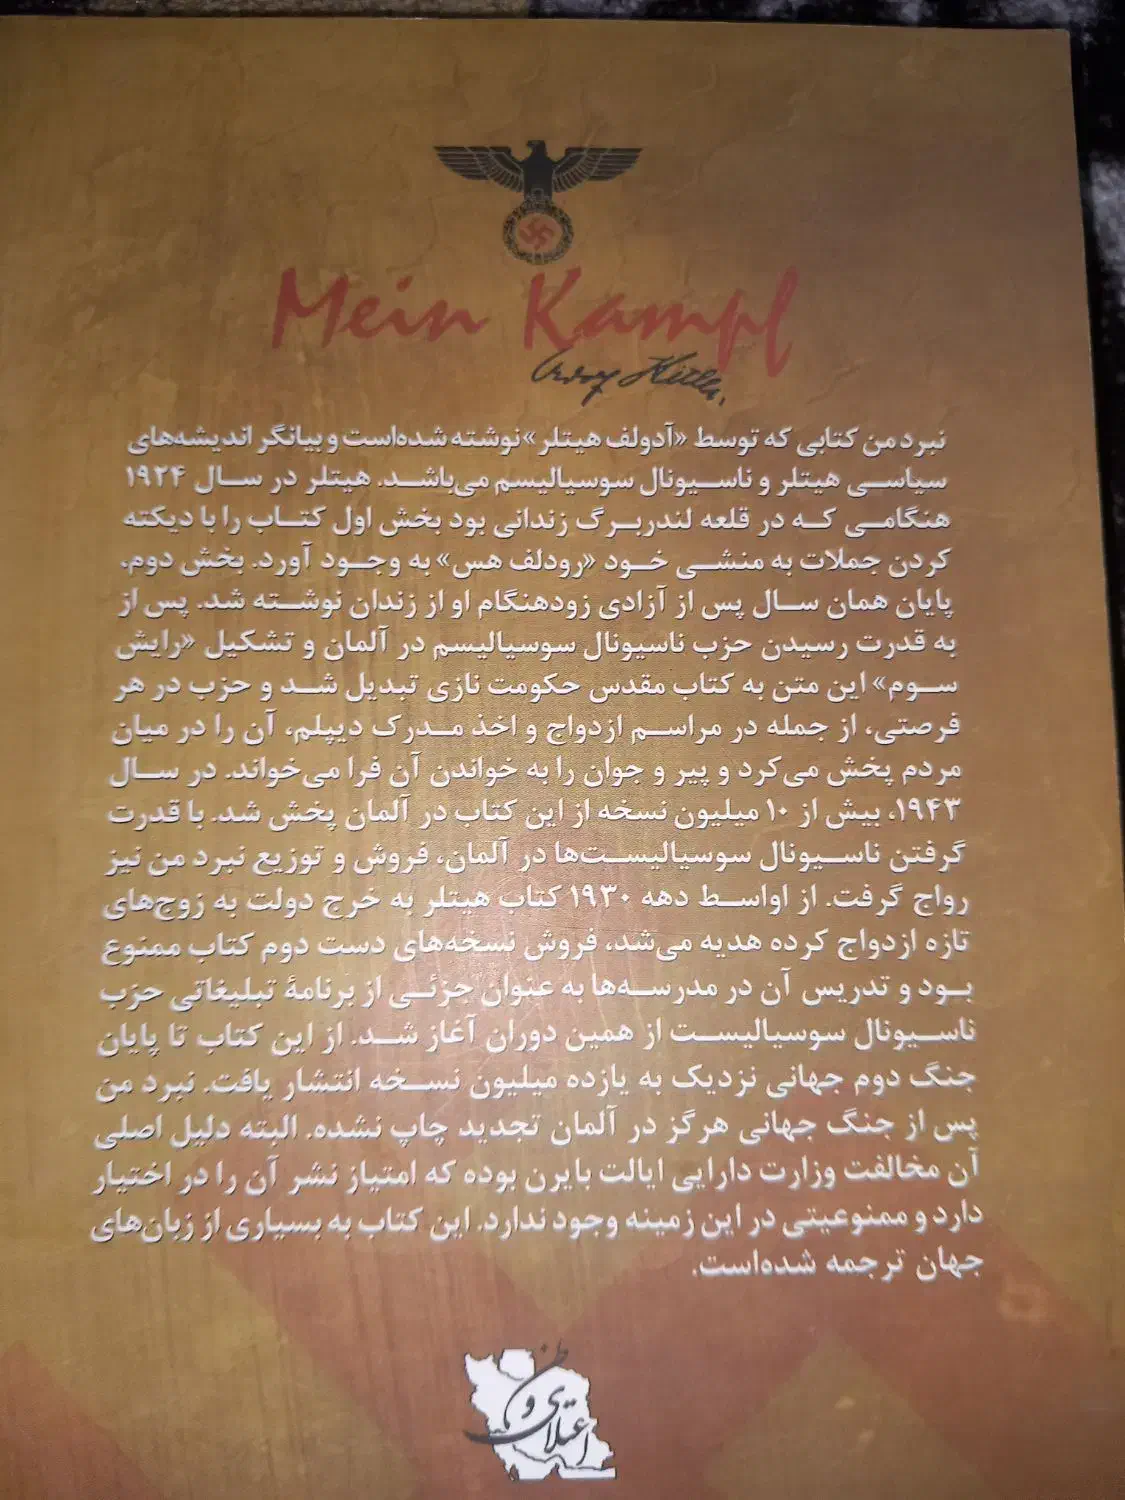 Mein Kampf
Adolf Hitler
نبرد من کتابی که توسط «آدولف هیتلر» نوشته شده‌است و بیانگر اندیشه‌های
سیاسی هیتلر و ناسیونال سوسیالیسم می‌باشد. هیتلر در سال ۱۹۲۴
هنگامی که در قلعه لندربرگ زندانی بود بخش اول کتاب را با دیکته
کردن جملات به منشی خود «رودلف هس» به وجود آورد. بخش دوم،
پایان همان سال پس از آزادی زودهنگام او از زندان نوشته شد. پس از
به قدرت رسیدن حزب ناسیونال سوسیالیسم در آلمان و تشکیل «رایش
سوم» این متن به کتاب مقدس حکومت نازی تبدیل شد و حزب در هر
فرصتی، از جمله در مراسم ازدواج و اخذ مدرک دیپلم، آن را در میان
مردم پخش می‌کرد و پیر و جوان را به خواندن آن فرا می‌خواند. در سال
۱۹۴۳، بیش از ۱۰ میلیون نسخه از این کتاب در آلمان پخش شد. با قدرت
گرفتن ناسیونال سوسیالیست‌ها در آلمان، فروش و توزیع نبرد من نیز
رواج گرفت. از اواسط دهه ۱۹۳۰ کتاب هیتلر به خرج دولت به زوج‌های
تازه ازدواج کرده هدیه می‌شد، فروش نسخه‌های دست دوم کتاب ممنوع
بود و تدریس آن در مدرسه‌ها به عنوان جزئی از برنامهٔ تبلیغاتی حزب
ناسیونال سوسیالیست از همین دوران آغاز شد. از این کتاب تا پایان
جنگ دوم جهانی نزدیک به یازده میلیون نسخه انتشار یافت. نبرد من
پس از جنگ جهانی هرگز در آلمان تجدید چاپ نشده. البته دلیل اصلی
آن مخالفت وزارت دارایی ایالت بایرن بوده که امتیاز نشر آن را در اختیار
دارد و ممنوعیتی در این زمینه وجود ندارد. این کتاب به بسیاری از زبان‌های
جهان ترجمه شده‌است.
اعتلای وطن